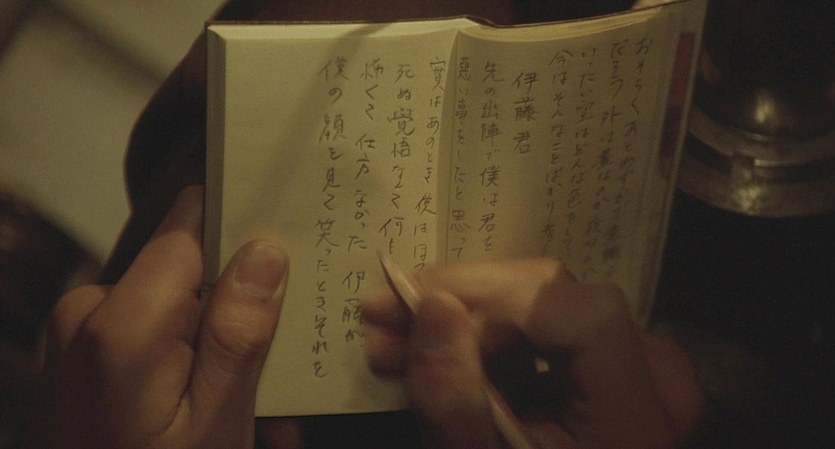 おそらくあと
だろう 外は
いったい空はどんな色をして
今はそんなことばかり考
伊藤君
先の出陣で僕は君を
悪い事をしたと思って
實はあのとき 僕はほ
死ぬ覺悟なんて何も
怖くて 仕方なかった 伊藤が
僕の顔を見て笑ったときそれを